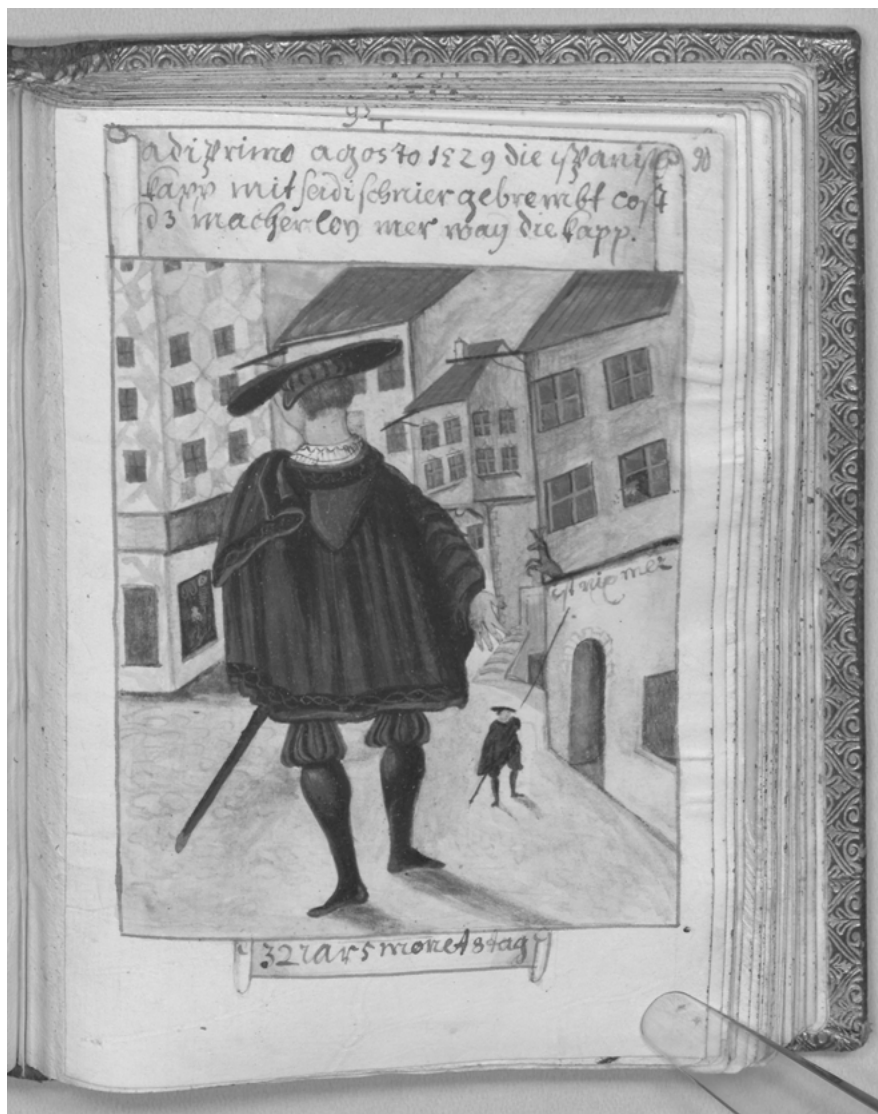 92
adi primo agosto 1529 die spanisch 90
kapp mit seidi schnier gebrembt cost
d3 macherlon mer wan die kapp.
ist nix mer
32 Jar 5 monet 8 tag